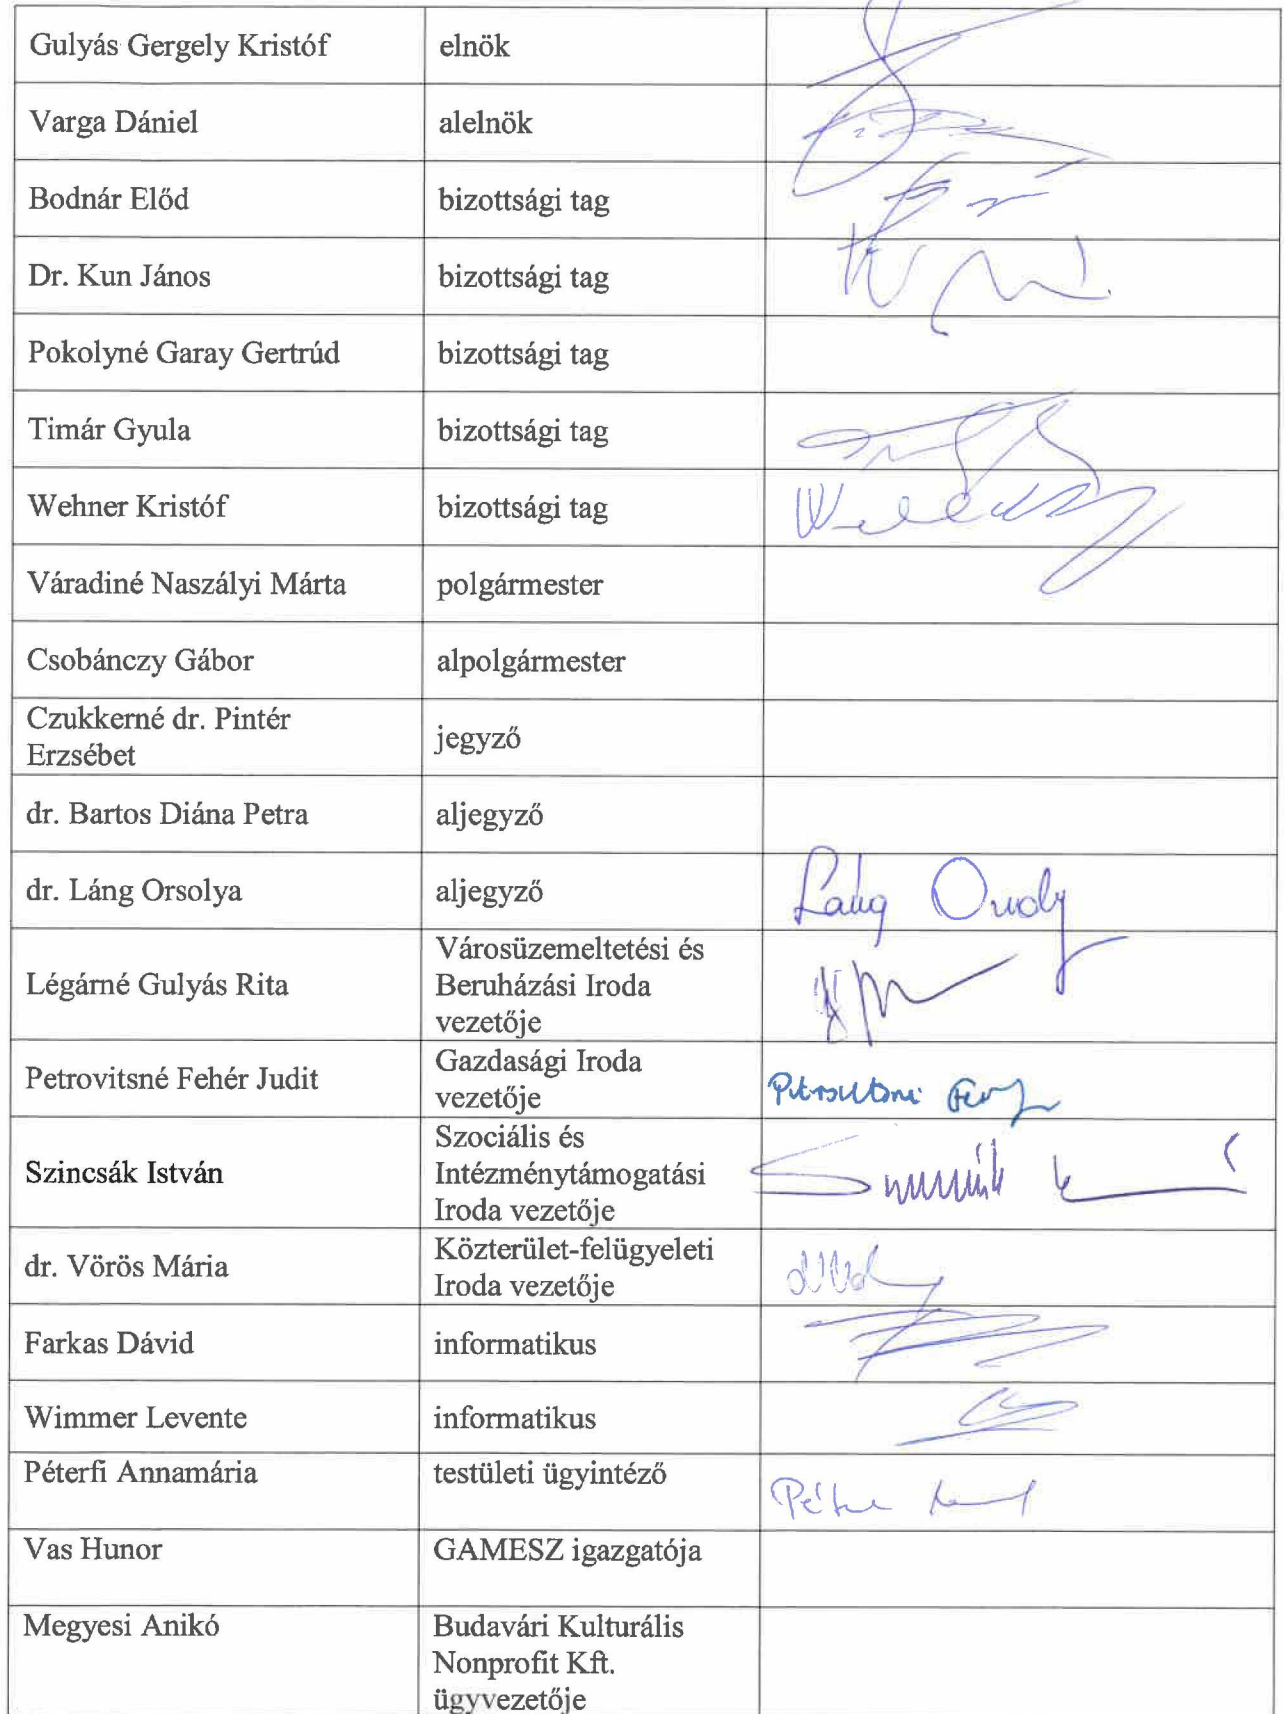 Gulyás Gergely Kristóf elnök
Varga Dániel alelnök
Bodnár Előd bizottsági tag
Dr. Kun János bizottsági tag
Pokolyné Garay Gertrúd bizottsági tag
Timár Gyula bizottsági tag
Wehner Kristóf bizottsági tag
Váradiné Naszályi Márta polgármester
Csobánczy Gábor alpolgármester
Czukkerné dr. Pintér
Erzsébet
jegyző
dr. Bartos Diána Petra aljegyző
dr. Láng Orsolya aljegyző Láng
Légárné Gulyás Rita
Városüzemeltetési és
Beruházási Iroda
vezetője
Petrovitsné Fehér Judit
Gazdasági Iroda
vezetője
Szincsák István
Szociális és
Intézménytámogatási
Iroda vezetője
dr. Vörös Mária
Közterület-felügyeleti
Iroda vezetője
Farkas Dávid informatikus
Wimmer Levente informatikus
Péterfi Annamária testületi ügyintéző
Vas Hunor GAMESZ igazgatója
Megyesi Anikó
Budavári Kulturális
Nonprofit Kft.
ügyvezetője